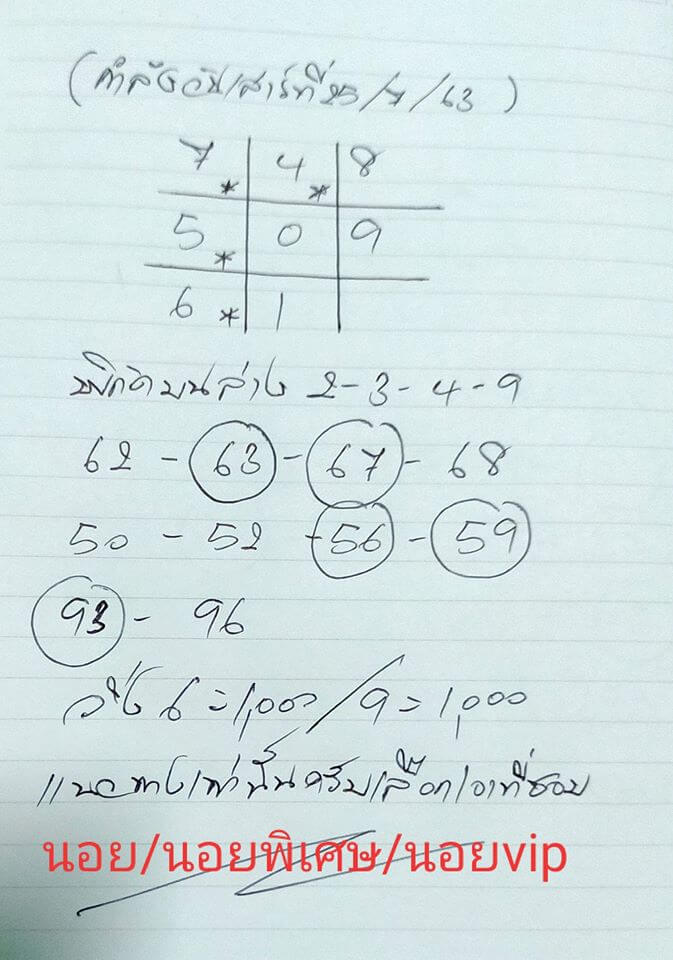 (กำลังวันเสาร์ที่25/7/63)
7* 4* 8
5* 0 9
6* 1
พิกัดบนล่าง 2-3-4-9
62 - 63 - 67 - 68
50 - 52 - 56 - 59
93 - 96
วิ่ง 6 = 1,000 / 9 = 1,000
แนวทางเท่านั้นครับเลือกเอาที่ชอบ
นอย/นอยพิเศษ/นอยvip